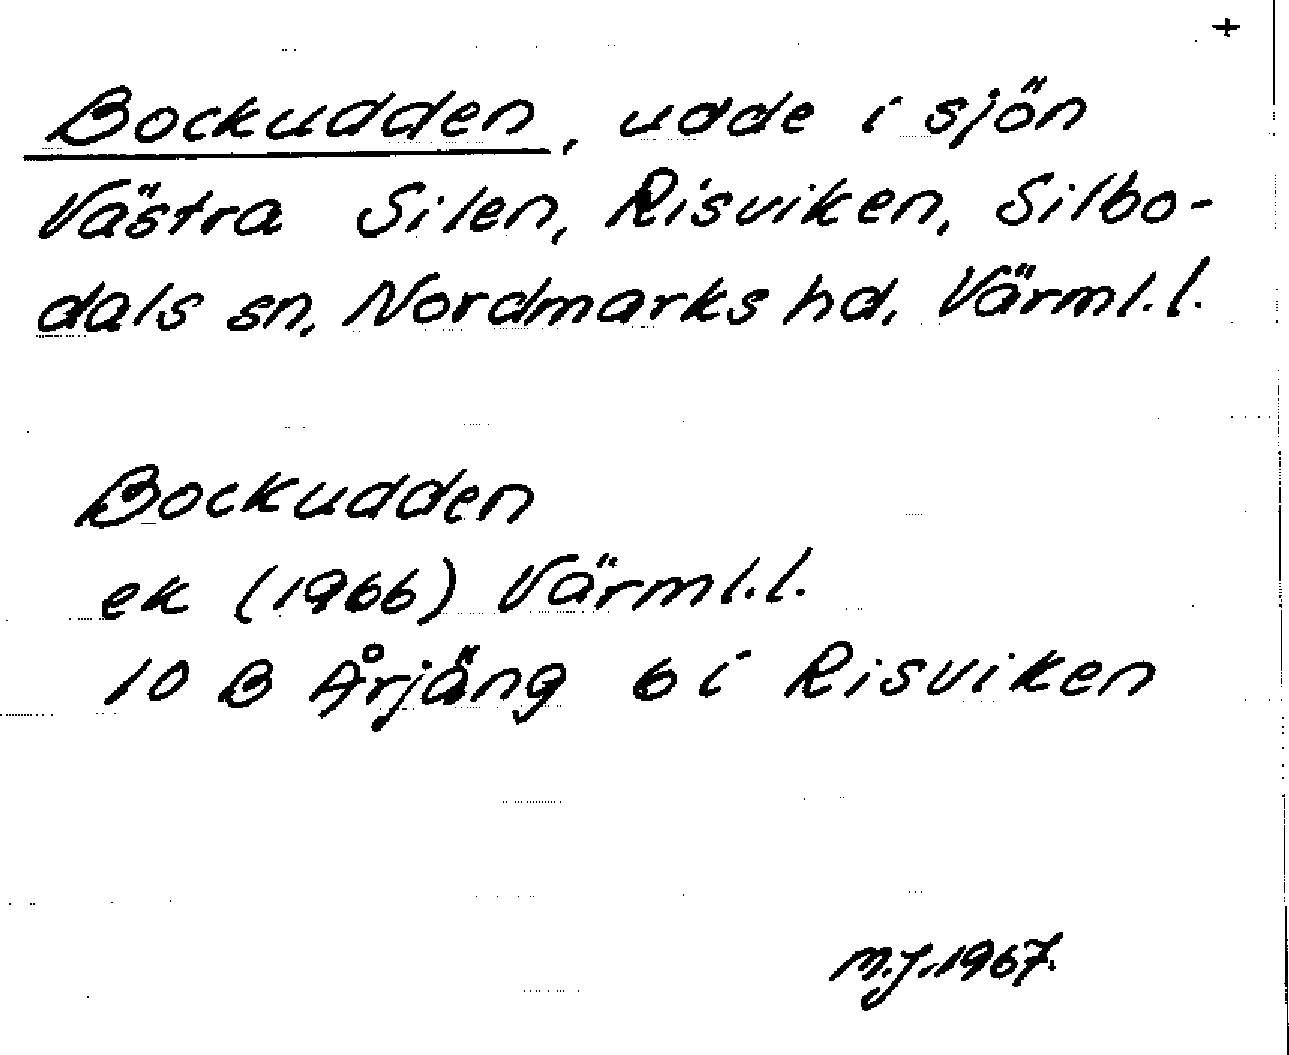 +
Bockudden, udde i sjön
Västra Silen, Risviken, Silbo-
dals sn, Nordmarks hd, Värml.l.
Bockudden
ek (1966) Värml.l.
10 B Årjäng 6 i Risviken
M.J. 1967.